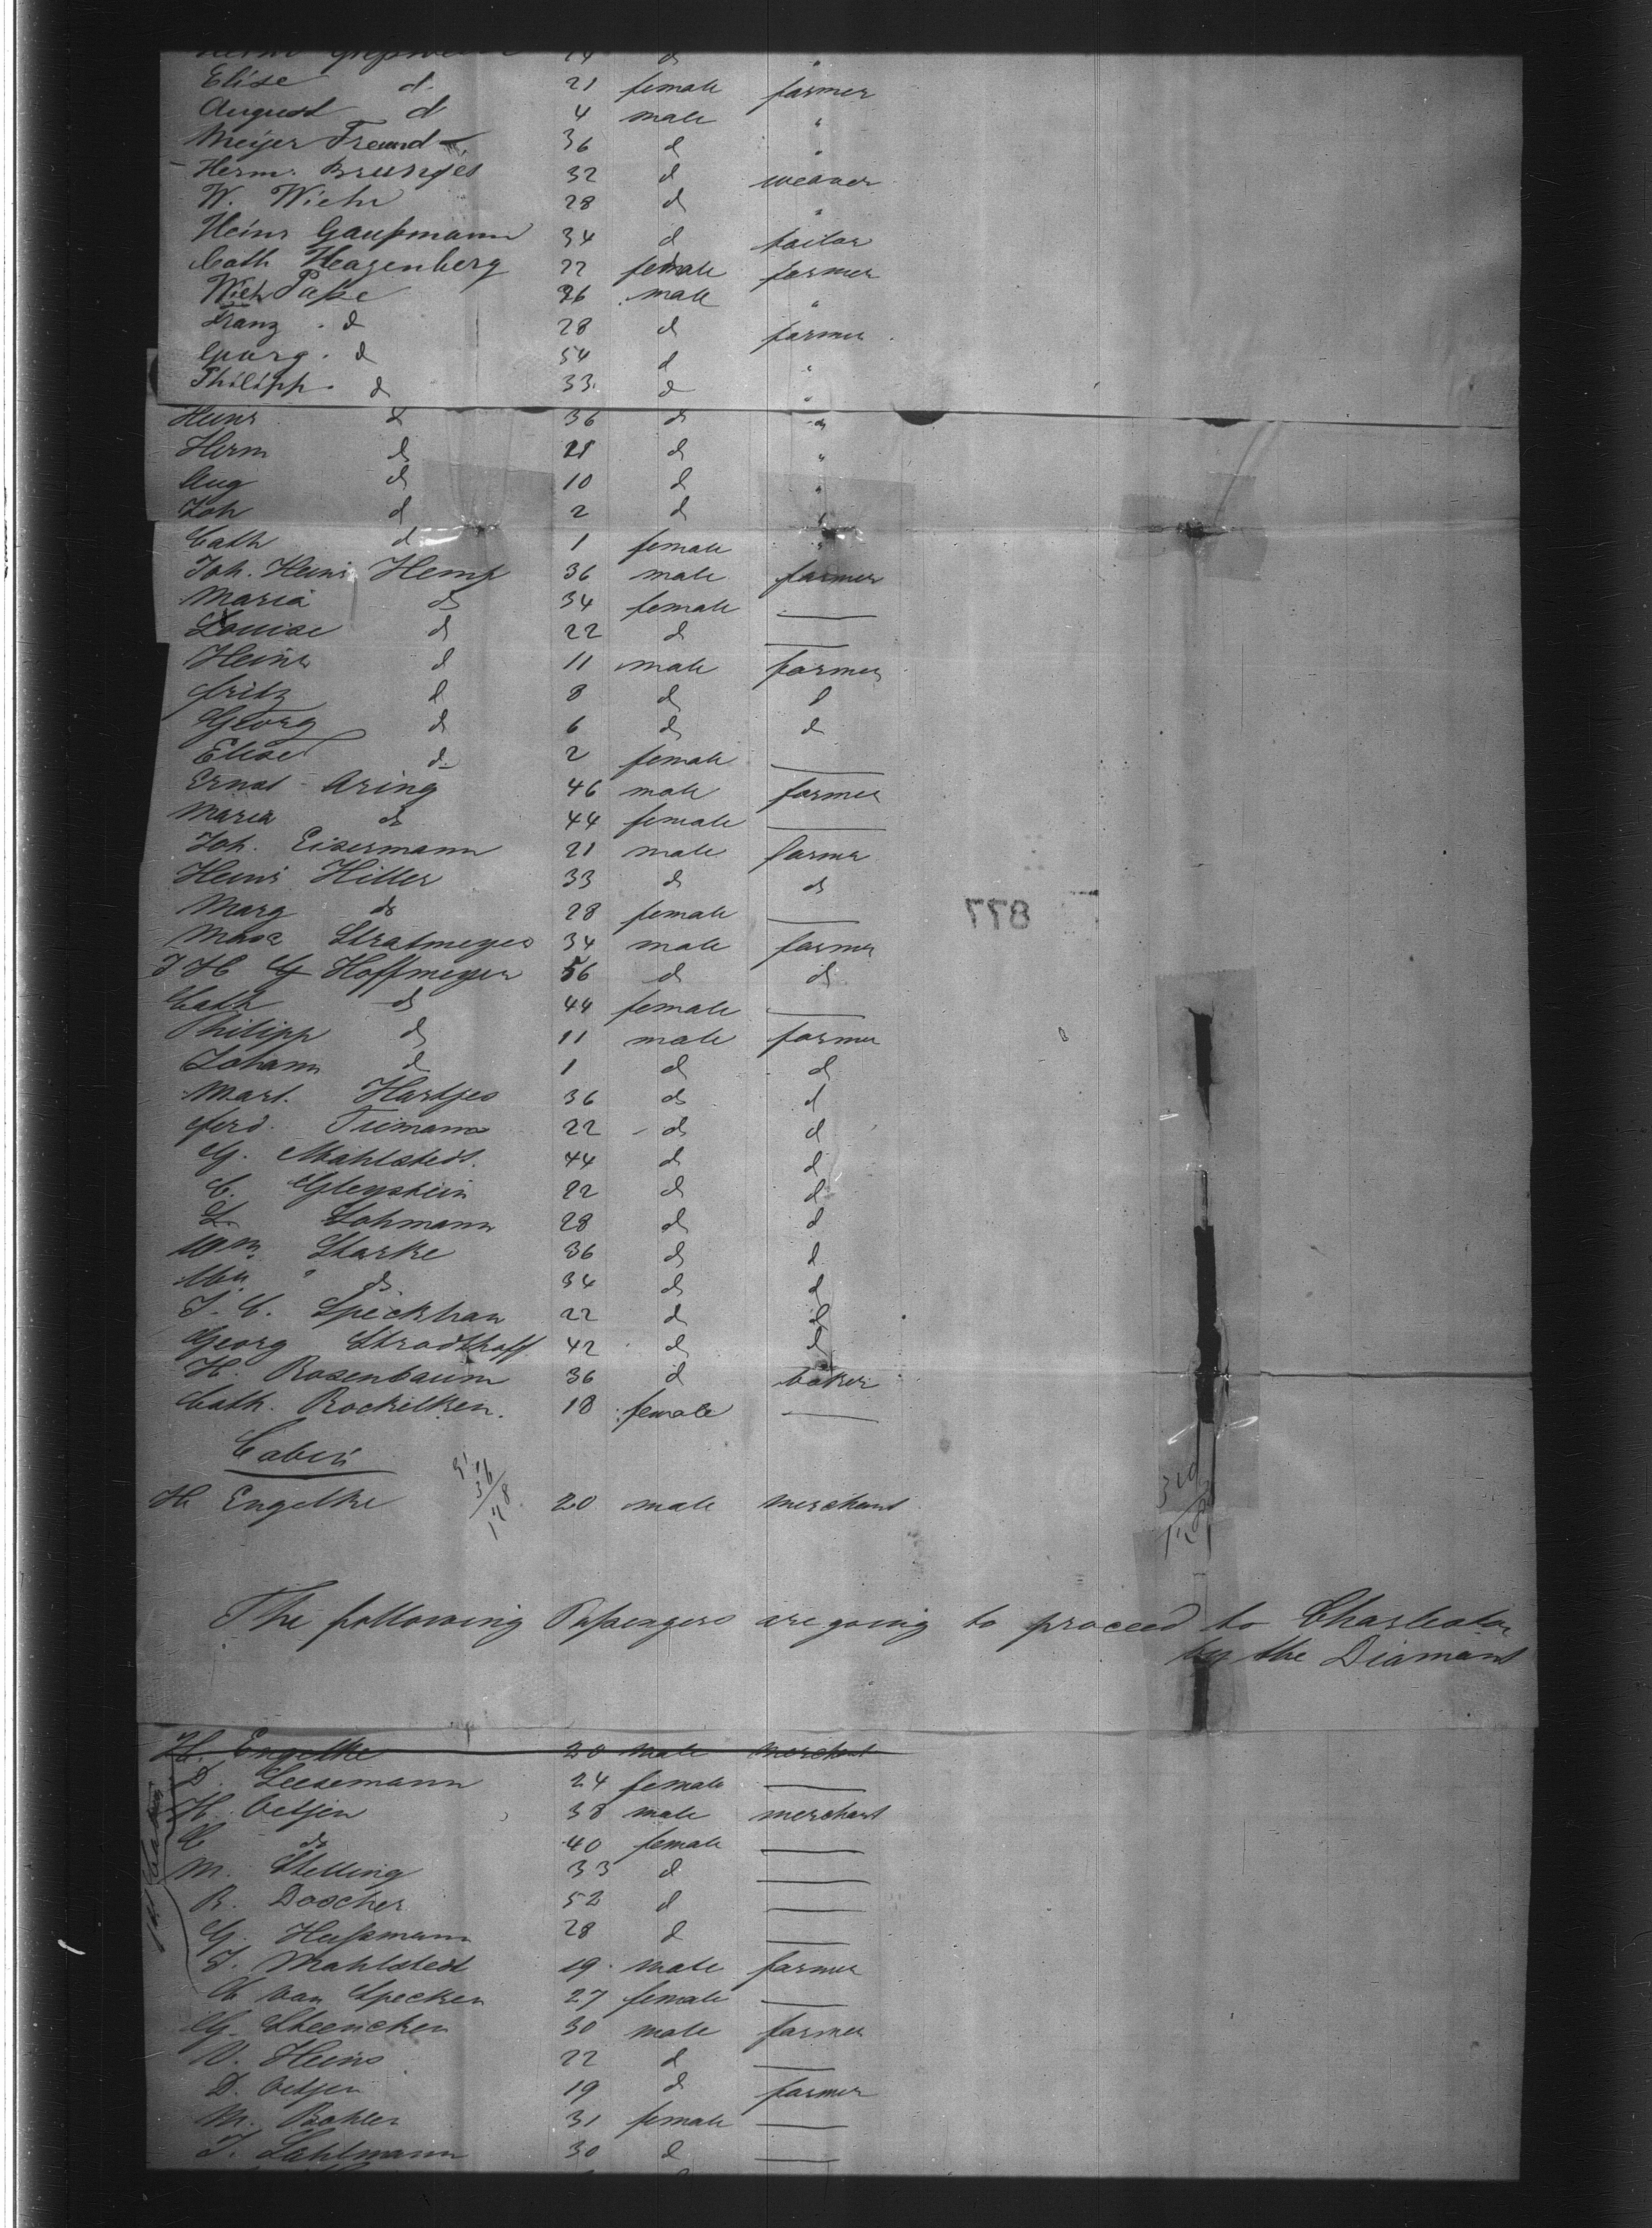 24 d "
Elise d. 21 female farmer
August d 4 male "
Meijer Freund 36 d "
Herm. Brunjes 32 d weaver
W. Wiehr 28 d "
Heinr Gaussmann 34 d tailor
Cath Hagenberg 22 female farmer
Wich Pape 26 male "
Franz . d 28 d farmer
Georg . d 54 d "
Philipp . d 33 d "
Heinr d 36 d "
Herm d 21 d "
Aug d 10 d "
Joh d 2 d "
Cath d 1 female "
Joh. Heinr Hemp 36 male farmer
Maria d 34 female —
Louise d 22 d —
Heinr d 11 male farmer
Fritz d 8 d d
Georg d 6 d d
Elise d 2 female —
Ernst Aring 46 male farmer
Maria d 44 female —
Joh. Eisermann 21 male farmer
Heinr Hiller 33 d d
Marg do 28 female —
877
Stratmeyer 34 male farmer
J H G Hoffmeyer 56 d d
Cath d 44 female —
Philipp d 11 male farmer
Johann d 1 d d
Mart. Hartjes 36 d d
Ferd. Tiemann 22 d d
G. Mahlstedt. 44 d d
C. Gleystein 22 d d
L. Lohmann 28 d d
Wm. Starke 36 d d
" d 34 d d
J. C. Speckhan 22 d d
Georg Stradthoff 42 d d
H. Rosenbaum 36 d baker
Cath. Rockelken. 18 female —
Cabin
H Engelke 20 male merchant
The following Passengers are going to proceed to Charleston
by the Diamant
H. Engelke 20 male merchant
D. Leesemann 24 female —
H. Oetjen 38 male merchant
C do 40 female —
M. Stelling 33 d —
R. Doscher 52 d —
G. Hussmann 28 d —
J. Mahlstedt 19 male farmer
van Specken 27 female —
G. Steencken 30 male farmer
V. Heins 22 d —
D. Oetjen 19 d farmer
M. Bohler 31 female —
J. Lahlmann 30 d —